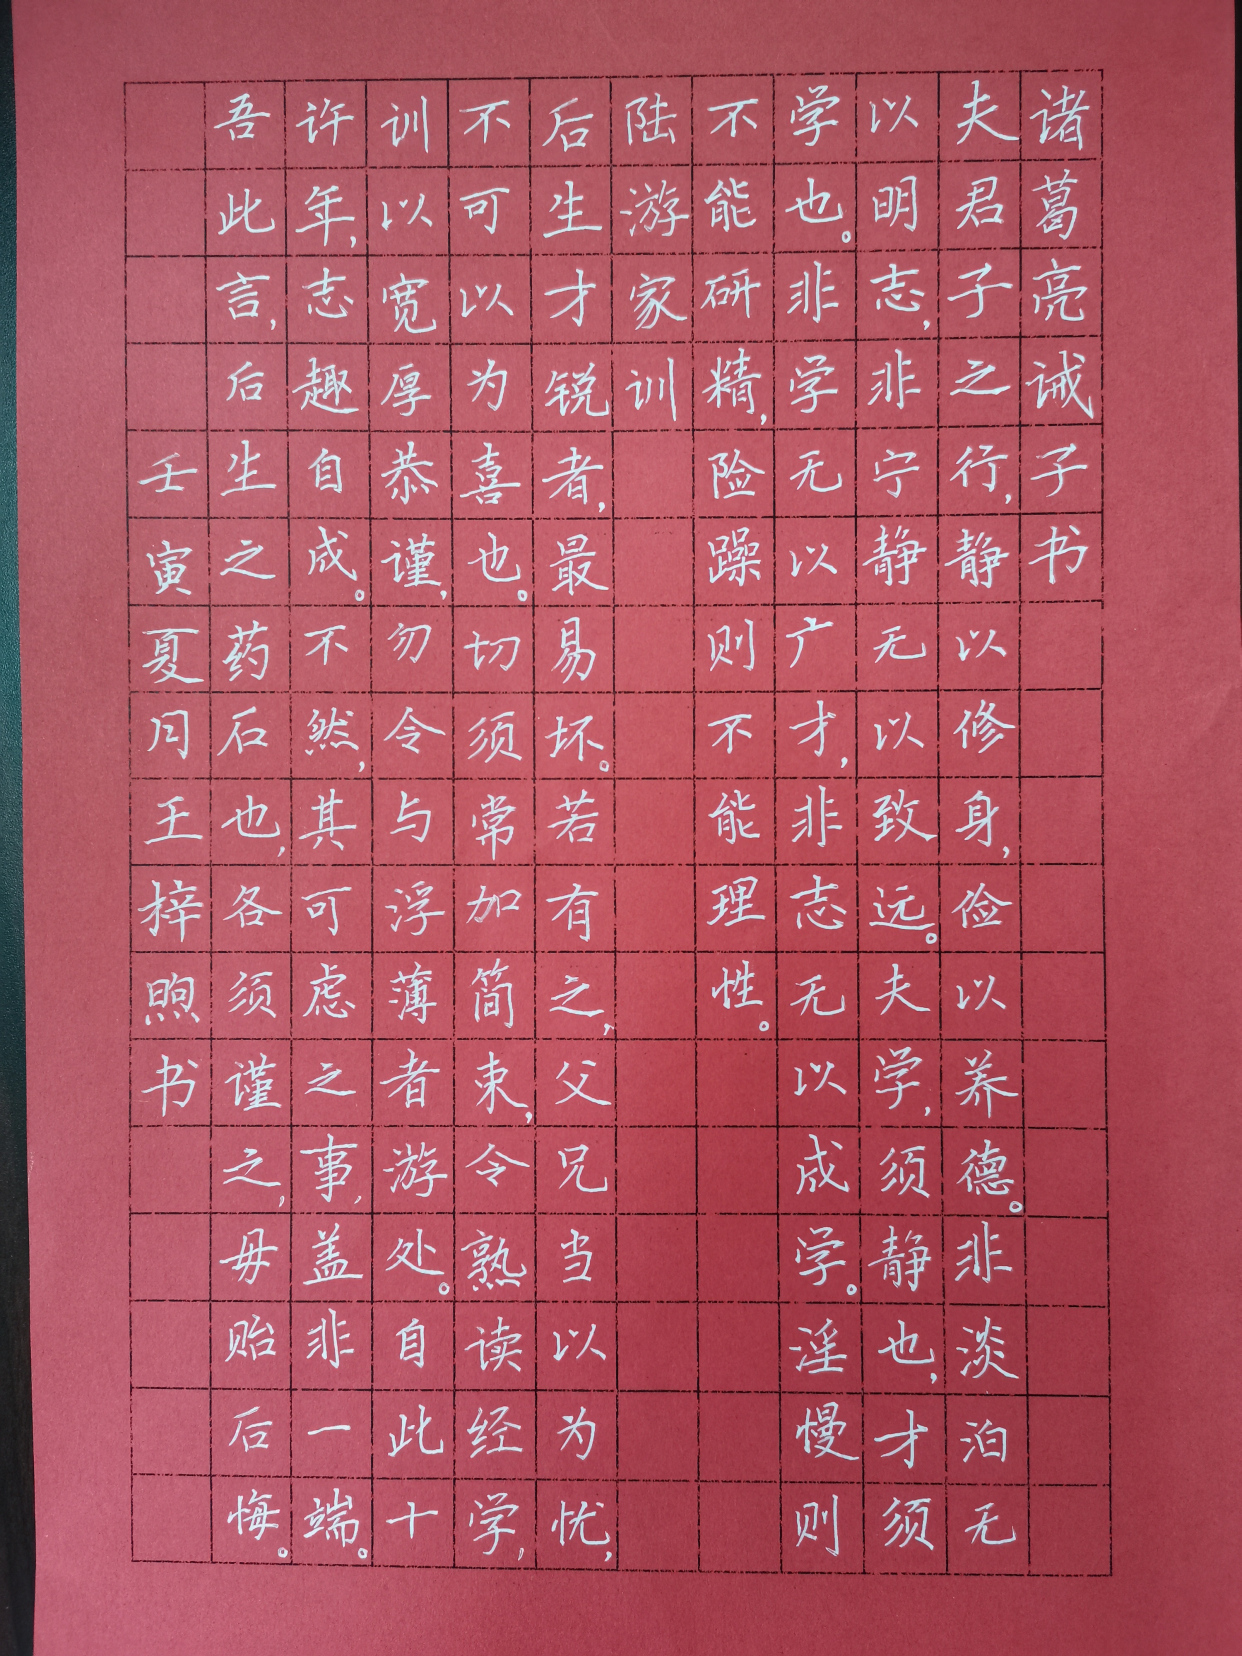 诸葛亮诫子书
夫君子之行,静以修身,俭以养德。非淡泊无
以明志,非宁静无以致远。夫学,须静也,才须
学也。非学无以广才,非志无以成学。淫慢则
不能研精,险躁则不能理性。
陆游家训
后生才锐者,最易坏。若有之,父兄当以为忧,
不可以为喜也。切须常加简束,令熟读经学,
训以宽厚恭谨,勿令与浮薄者游处。自此十
许年,志趣自成。不然,其可虑之事,盖非一端。
吾此言,后生之药石也,各须谨之,毋贻后悔。
壬寅夏月王梓煦书